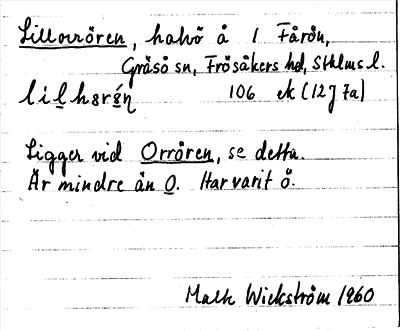 Lillorrören, halvö å 1 Fårön,
Gräsö sn, Frösåkers hd, Sthlms l.
106 ek (12J7a)
Ligger vid Orrören, se detta.
Är mindre än O. Har varit ö.
Malk Wickström 1960